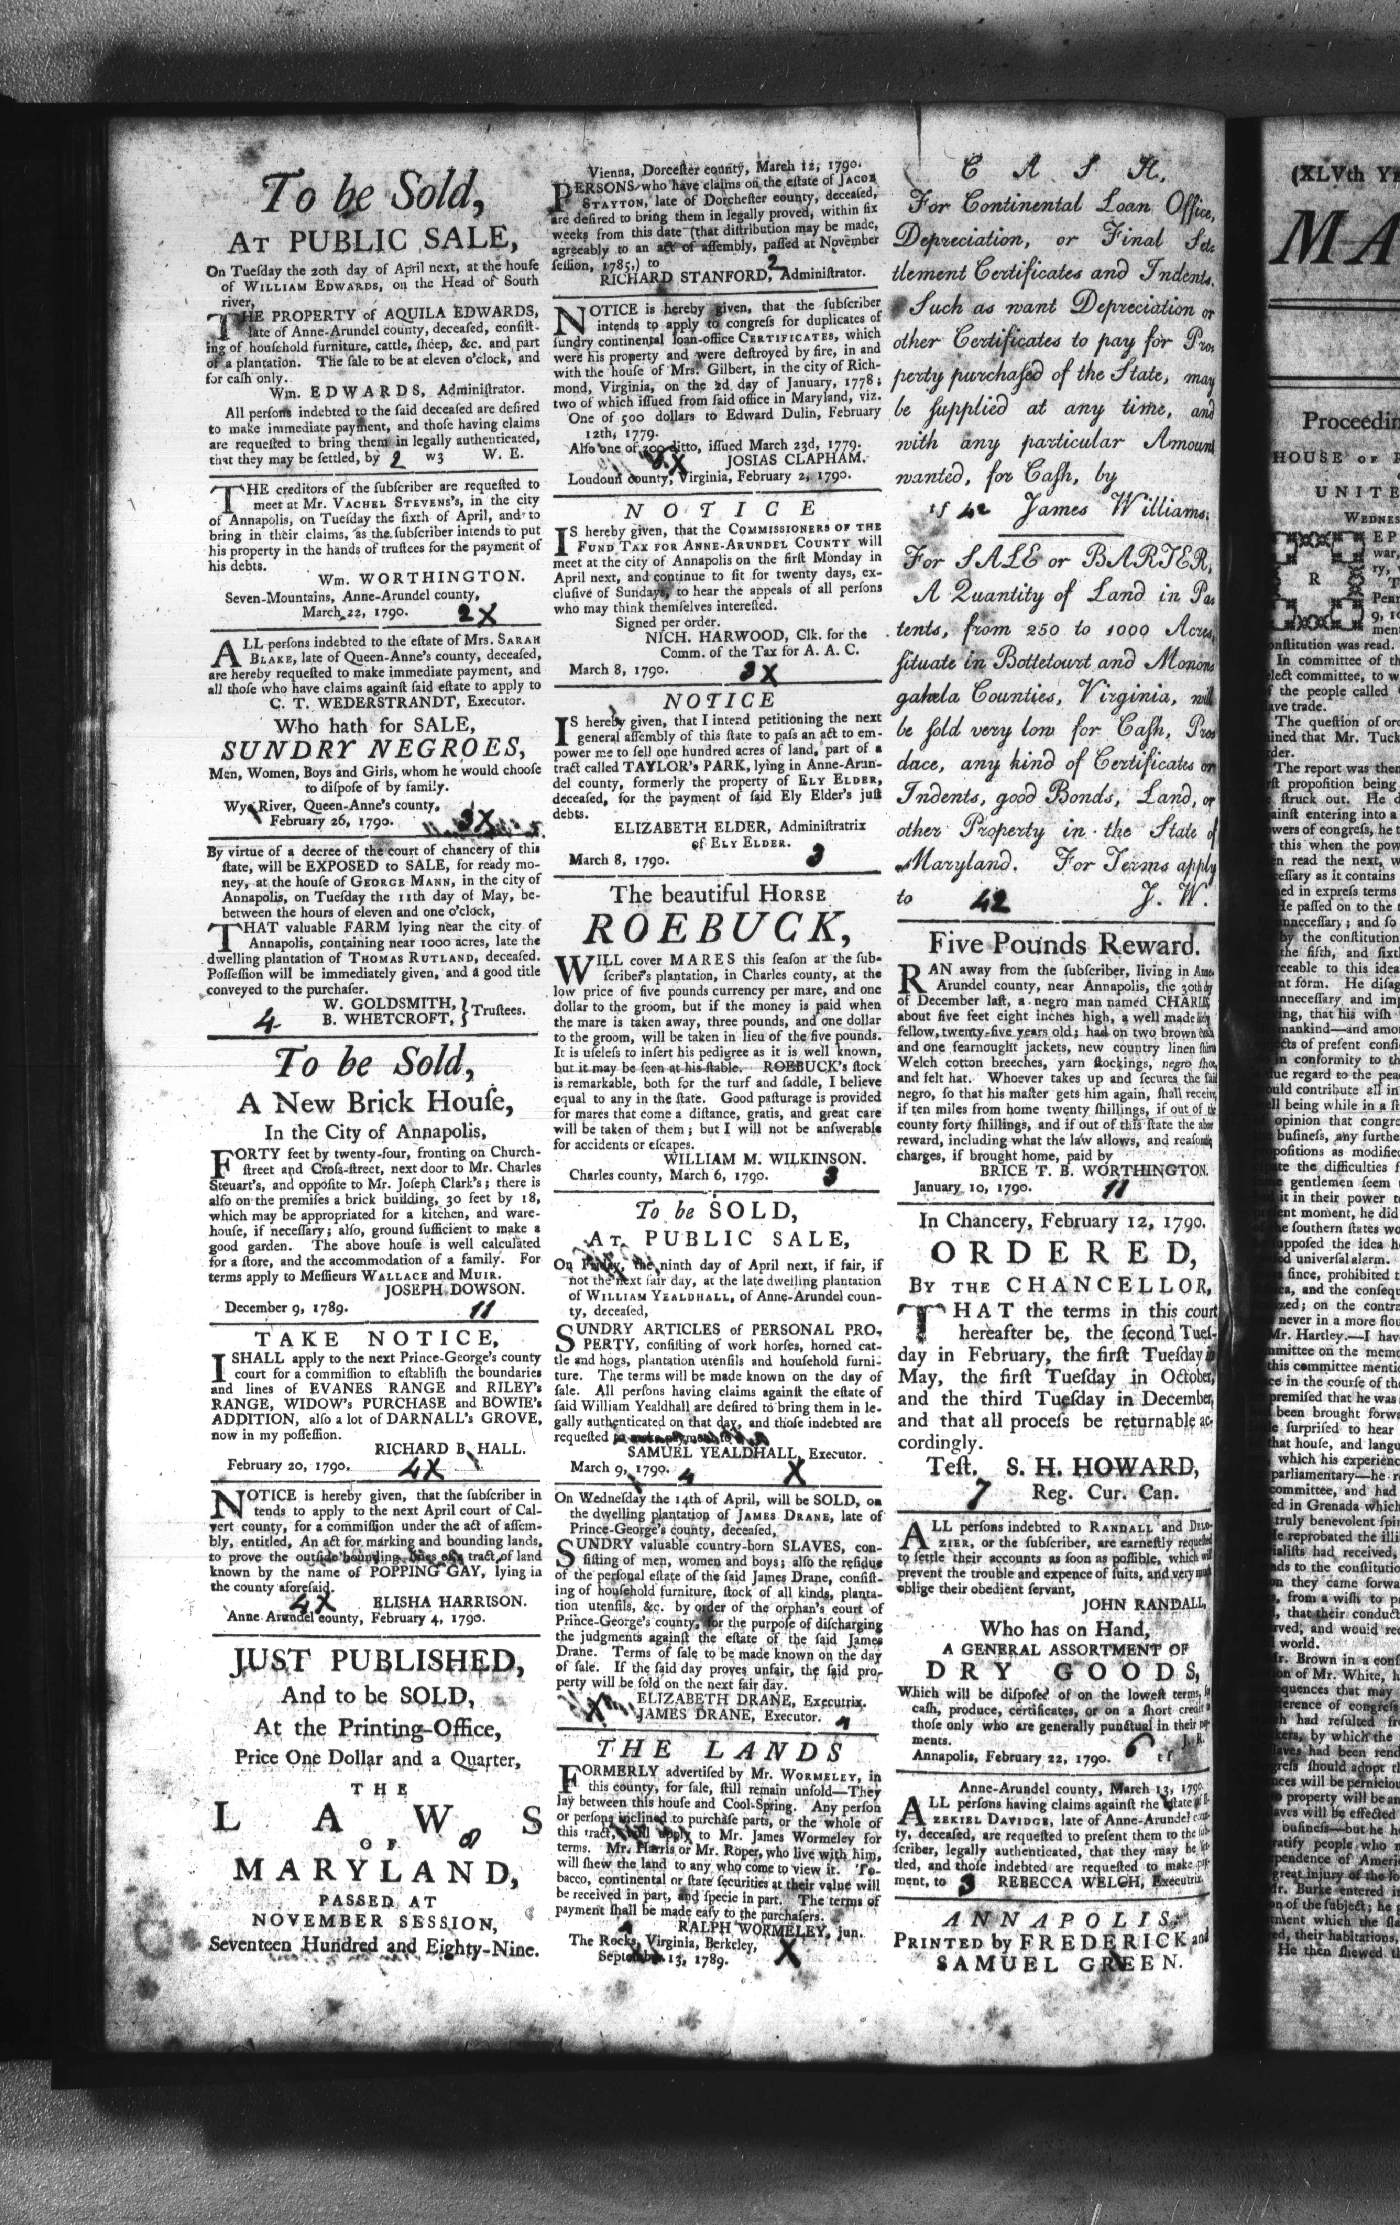 To be Sold,
AT PUBLIC SALE,
On Tueſday the 20th day of April next, at the houſe
of WILLIAM EDWARDS, on the Head of South
river,
THE PROPERTY of AQUILA EDWARDS,
late of Anne-Arundel county, deceaſed, conſiſt-
ing of houſehold furniture, cattle, ſheep, &c. and part
of a plantation. The ſale to be at eleven o'clock, and
for caſh only.
Wm. EDWARDS, Adminiſtrator.
All perſons indebted to the ſaid deceaſed are deſired
to make immediate payment, and thoſe having claims
are requeſted to bring them in legally authenticated,
that they may be ſettled, by 2 w3 W. E.
THE creditors of the ſubſcriber are requeſted to
meet at Mr. VACHEL STEVENS's, in the city
of Annapolis, on Tueſday the ſixth of April, and to
bring in their claims, as the ſubſcriber intends to put
his property in the hands of truſtees for the payment of
his debts.
Wm. WORTHINGTON.
Seven-Mountains, Anne-Arundel county,
March 22, 1790. 2X
ALL perſons indebted to the eſtate of Mrs. SARAH
BLAKE, late of Queen-Anne's county, deceaſed,
are hereby requeſted to make immediate payment, and
all thoſe who have claims againſt ſaid eſtate to apply to
C. T. WEDERSTRANDT, Executor.
Who hath for SALE,
SUNDRY NEGROES,
Men, Women, Boys and Girls, whom he would chooſe
to diſpoſe of by family.
Wye River, Queen-Anne's county,
February 26, 1790. 3X
By virtue of a decree of the court of chancery of this
ſtate, will be EXPOSED to SALE, for ready mo-
ney, at the houſe of GEORGE MANN, in the city of
Annapolis, on Tueſday the 11th day of May, be-
between the hours of eleven and one o'clock,
THAT valuable FARM lying near the city of
Annapolis, containing near 1000 acres, late the
dwelling plantation of THOMAS RUTLAND, deceaſed.
Poſſeſſion will be immediately given, and a good title
conveyed to the purchaſer.
W. GOLDSMITH, } Truſtees.
4 B. WHETCROFT,
To be Sold,
A New Brick Houſe,
In the City of Annapolis,
FORTY feet by twenty-four, fronting on Church-
ſtreet and Croſs-ſtreet, next door to Mr. Charles
Steuart's, and oppoſite to Mr. Joſeph Clark's; there is
alſo on the premiſes a brick building, 30 feet by 18,
which may be appropriated for a kitchen, and ware-
houſe, if neceſſary; alſo, ground ſufficient to make a
good garden. The above houſe is well calculated
for a ſtore, and the accommodation of a family. For
terms apply to Meſſieurs WALLACE and MUIR.
JOSEPH DOWSON.
December 9, 1789. 11
TAKE NOTICE,
I SHALL apply to the next Prince-George's county
court for a commiſſion to eſtabliſh the boundaries
and lines of EVANES RANGE and RILEY's
RANGE, WIDOW's PURCHASE and BOWIE's
ADDITION, alſo a lot of DARNALL's GROVE,
now in my poſſeſſion.
RICHARD B. HALL.
February 20, 1790. 4X
NOTICE is hereby given, that the ſubſcriber in
tends to apply to the next April court of Cal-
vert county, for a commiſſion under the act of aſſem-
bly, entitled, An act for marking and bounding lands,
to prove the outſide bounding lines of a tract of land
known by the name of POPPING GAY, lying in
the county aforeſaid.
4X ELISHA HARRISON.
Anne Arundel county, February 4, 1790.
JUST PUBLISHED,
And to be SOLD,
At the Printing-Office,
Price One Dollar and a Quarter,
THE
LAWS
OF 8
MARYLAND,
PASSED AT
NOVEMBER SESSION,
Seventeen Hundred and Eighty-Nine.
Vienna, Dorceſter county, March 12, 1790.
PERSONS who have claims on the eſtate of JACOB
STAYTON, late of Dorcheſter county, deceaſed,
are deſired to bring them in legally proved, within ſix
weeks from this date (that diſtribution may be made,
agreeably to an act of aſſembly, paſſed at November
ſeſſion, 1785,) to 2
RICHARD STANFORD, Adminiſtrator.
NOTICE is hereby given, that the ſubſcriber
intends to apply to congreſs for duplicates of
ſundry continental loan-office CERTIFICATES, which
were his property and were deſtroyed by fire, in and
with the houſe of Mrs. Gilbert, in the city of Rich-
mond, Virginia, on the 2d day of January, 1778;
two of which iſſued from ſaid office in Maryland, viz.
One of 500 dollars to Edward Dulin, February
12th, 1779.
Alſo one of 300 ditto, iſſued March 23d, 1779.
JOSIAS CLAPHAM.
Loudoun county, Virginia, February 2, 1790.
NOTICE
IS hereby given, that the COMMISSIONERS OF THE
FUND TAX FOR ANNE-ARUNDEL COUNTY will
meet at the city of Annapolis on the firſt Monday in
April next, and continue to ſit for twenty days, ex-
cluſive of Sundays, to hear the appeals of all perſons
who may think themſelves intereſted.
Signed per order.
NICH. HARWOOD, Clk. for the
Comm. of the Tax for A. A. C.
March 8, 1790. 3X
NOTICE
IS hereby given, that I intend petitioning the next
general aſſembly of this ſtate to paſs an act to em-
power me to ſell one hundred acres of land, part of a
tract called TAYLOR's PARK, lying in Anne-Arun-
del county, formerly the property of ELY ELDER,
deceaſed, for the payment of ſaid Ely Elder's juſt
debts.
ELIZABETH ELDER, Adminiſtratrix
of ELY ELDER.
March 8, 1790. 3
The beautiful HORSE
ROEBUCK,
WILL cover MARES this ſeaſon at the ſub-
ſcriber's plantation, in Charles county, at the
low price of five pounds currency per mare, and one
dollar to the groom, but if the money is paid when
the mare is taken away, three pounds, and one dollar
to the groom, will be taken in lieu of the five pounds.
It is uſeleſs to inſert his pedigree as it is well known,
but it may be ſeen at his ſtable. ROEBUCK's ſtock
is remarkable, both for the turf and ſaddle, I believe
equal to any in the ſtate. Good paſturage is provided
for mares that come a diſtance, gratis, and great care
will be taken of them; but I will not be anſwerable
for accidents or eſcapes.
WILLIAM M. WILKINSON.
Charles county, March 6, 1790. 3
To be SOLD,
AT PUBLIC SALE,
On Friday, the ninth day of April next, if fair, if
not the next fair day, at the late dwelling plantation
of WILLIAM YEALDHALL, of Anne-Arundel coun-
ty, deceaſed,
SUNDRY ARTICLES of PERSONAL PRO-
PERTY, conſiſting of work horſes, horned cat-
tle and hogs, plantation utenſils and houſehold furni-
ture. The terms will be made known on the day of
ſale. All perſons having claims againſt the eſtate of
ſaid William Yealdhall are deſired to bring them in le-
gally authenticated on that day, and thoſe indebted are
requeſted to make payment to
SAMUEL YEALDHALL, Executor.
March 9, 1790. 4 X
On Wedneſday the 14th of April, will be SOLD, on
the dwelling plantation of JAMES DRANE, late of
Prince-George's county, deceaſed,
SUNDRY valuable country-born SLAVES, con-
ſiſting of men, women and boys; alſo the reſidue
of the perſonal eſtate of the ſaid James Drane, conſiſt-
ing of houſehold furniture, ſtock of all kinds, planta-
tion utenſils, &c. by order of the orphan's court of
Prince-George's county, for the purpoſe of diſcharging
the judgments againſt the eſtate of the ſaid James
Drane. Terms of ſale to be made known on the day
of ſale. If the ſaid day proves unfair, the ſaid pro-
perty will be ſold on the next fair day.
ELIZABETH DRANE, Executrix.
JAMES DRANE, Executor. 4
THE LANDS
FORMERLY advertiſed by Mr. WORMELEY, in
this county, for ſale, ſtill remain unſold—They
lay between this houſe and Cool-Spring. Any perſon
or perſons inclined to purchaſe parts, or the whole of
this tract, will apply to Mr. James Wormeley for
terms. Mr. Harris or Mr. Roper, who live with him,
will ſhew the land to any who come to view it. To-
bacco, continental or ſtate ſecurities at their value will
be received in part, and ſpecie in part. The terms of
payment ſhall be made eaſy to the purchaſers.
RALPH WORMELEY, jun.
The Rocks, Virginia, Berkeley,
September 13, 1789. X
CASH,
For Continental Loan Office,
Depreciation, or Final Set-
tlement Certificates and Indents.
Such as want Depreciation or
other Certificates to pay for Pro-
perty purchaſed of the State, may
be ſupplied at any time, and
with any particular Amount
wanted, for Caſh, by
tf 42 James Williams.
For SALE or BARTER,
A Quantity of Land in Pa-
tents, from 250 to 1000 Acres,
ſituate in Bottetourt and Monon-
gahela Counties, Virginia, will
be ſold very low for Caſh, Pro-
dace, any kind of Certificates or
Indents, good Bonds, Land, or
other Property in the State of
Maryland. For Terms apply
to 42 J. W.
Five Pounds Reward.
RAN away from the ſubſcriber, living in Anne-
Arundel county, near Annapolis, the 30th day
of December laſt, a negro man named CHARLES,
about five feet eight inches high, a well made
fellow, twenty-five years old; had on two brown
and one fearnought jackets, new country linen ſhirt
Welch cotton breeches, yarn ſtockings, negro ſhoes,
and felt hat. Whoever takes up and ſecures the ſaid
negro, ſo that his maſter gets him again, ſhall receive,
if ten miles from home twenty ſhillings, if out of the
county forty ſhillings, and if out of this ſtate the above
reward, including what the law allows, and reaſonable
charges, if brought home, paid by
BRICE T. B. WORTHINGTON.
January 10, 1790. 11
In Chancery, February 12, 1790.
ORDERED,
BY THE CHANCELLOR,
THAT the terms in this court
hereafter be, the ſecond Tueſ-
day in February, the firſt Tueſday in
May, the firſt Tueſday in October,
and the third Tueſday in December,
and that all proceſs be returnable ac-
cordingly.
Teſt. S. H. HOWARD,
7 Reg. Cur. Can.
ALL perſons indebted to RANDALL and DELO-
ZIER, or the ſubſcriber, are earneſtly requeſted
to ſettle their accounts as ſoon as poſſible, which will
prevent the trouble and expence of ſuits, and very much
oblige their obedient ſervant,
JOHN RANDALL,
Who has on Hand,
A GENERAL ASSORTMENT OF
DRY GOODS,
Which will be diſpoſed of on the loweſt terms, for
caſh, produce, certificates, or on a ſhort credit to
thoſe only who are generally punctual in their pay-
ments. J. R.
Annapolis, February 22, 1790. 6 tf
Anne-Arundel county, March 13, 1790.
ALL perſons having claims againſt the eſtate of E-
ZEKIEL DAVIDGE, late of Anne-Arundel coun-
ty, deceaſed, are requeſted to preſent them to the ſub-
ſcriber, legally authenticated, that they may be ſet-
tled, and thoſe indebted are requeſted to make pay-
ment, to 3 REBECCA WELCH, Executrix.
ANNAPOLIS:
PRINTED by FREDERICK and
SAMUEL GREEN.
(XLVth
MA
Proceedin
HOUSE OF
UNITE